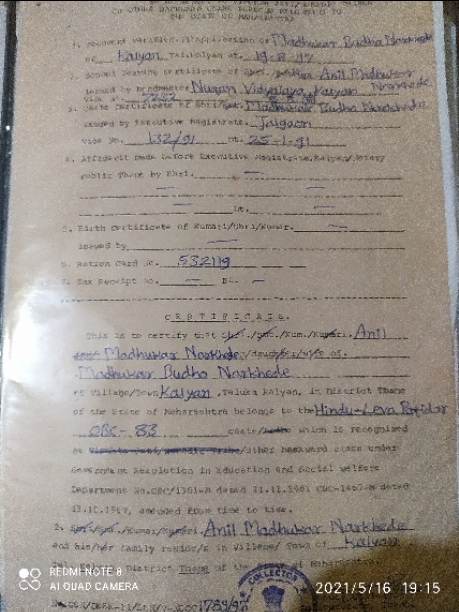 THE STATE OF MAHARASHTRA
1. Document verified. Application of Madhukar Budho Narkhede
of Kalyan Tal. Kalyan dt. 19-8-97
2. School leaving certificate of Anil Madhukar
issued by Nutan Vidyalaya Kalyan Narkhede
3. Caste Certificate of Shri Madhukar Budho Narkhede
issued by Executive Magistrate. Jalgaon
Vide No. 132/91 Dt. 25-1-91
4. Affidavit made before Executive Magistrate, Kalyan/Notary
Public Thane by Shri.
Dt.
5. Birth Certificate of Kumari/Shri/Kumar.
issued by
6. Ration Card No. 532119
7. Tax Receipt No. Dt.
CERTIFICATE
This is to certify that Shri./Smt./Kum./Kumari. Anil
Madhukar Narkhede
Madhukar Budho Narkhede
of Village/Town Kalyan, Taluka Kalyan, in District Thane
of the State of Maharashtra belongs to the Hindu-Leva Patidar
OBC-83 caste which is recognised
other backward class under
Government Resolution in Education and Social Welfare
Department No. dated 21.11.1961 dated
amended from time to time.
2. Shri./Smt./Kumar/Kumari Anil Madhukar Narkhede
and his/her family reside/s in Village/ Town of Kalyan
District Thane of the
COLLECTOR
REDMI NOTE 8
AI QUAD CAMERA
2021/5/16 19:15